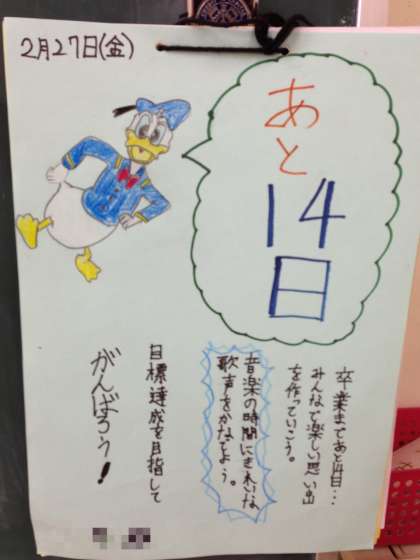 2月27日(金)
あと
14
日
卒業まであと14日…
みんなで楽しい思い出
を作っていこう。
音楽の時間にきれいな
歌声をかなでよう。
目標達成を目指して
がんばろう!